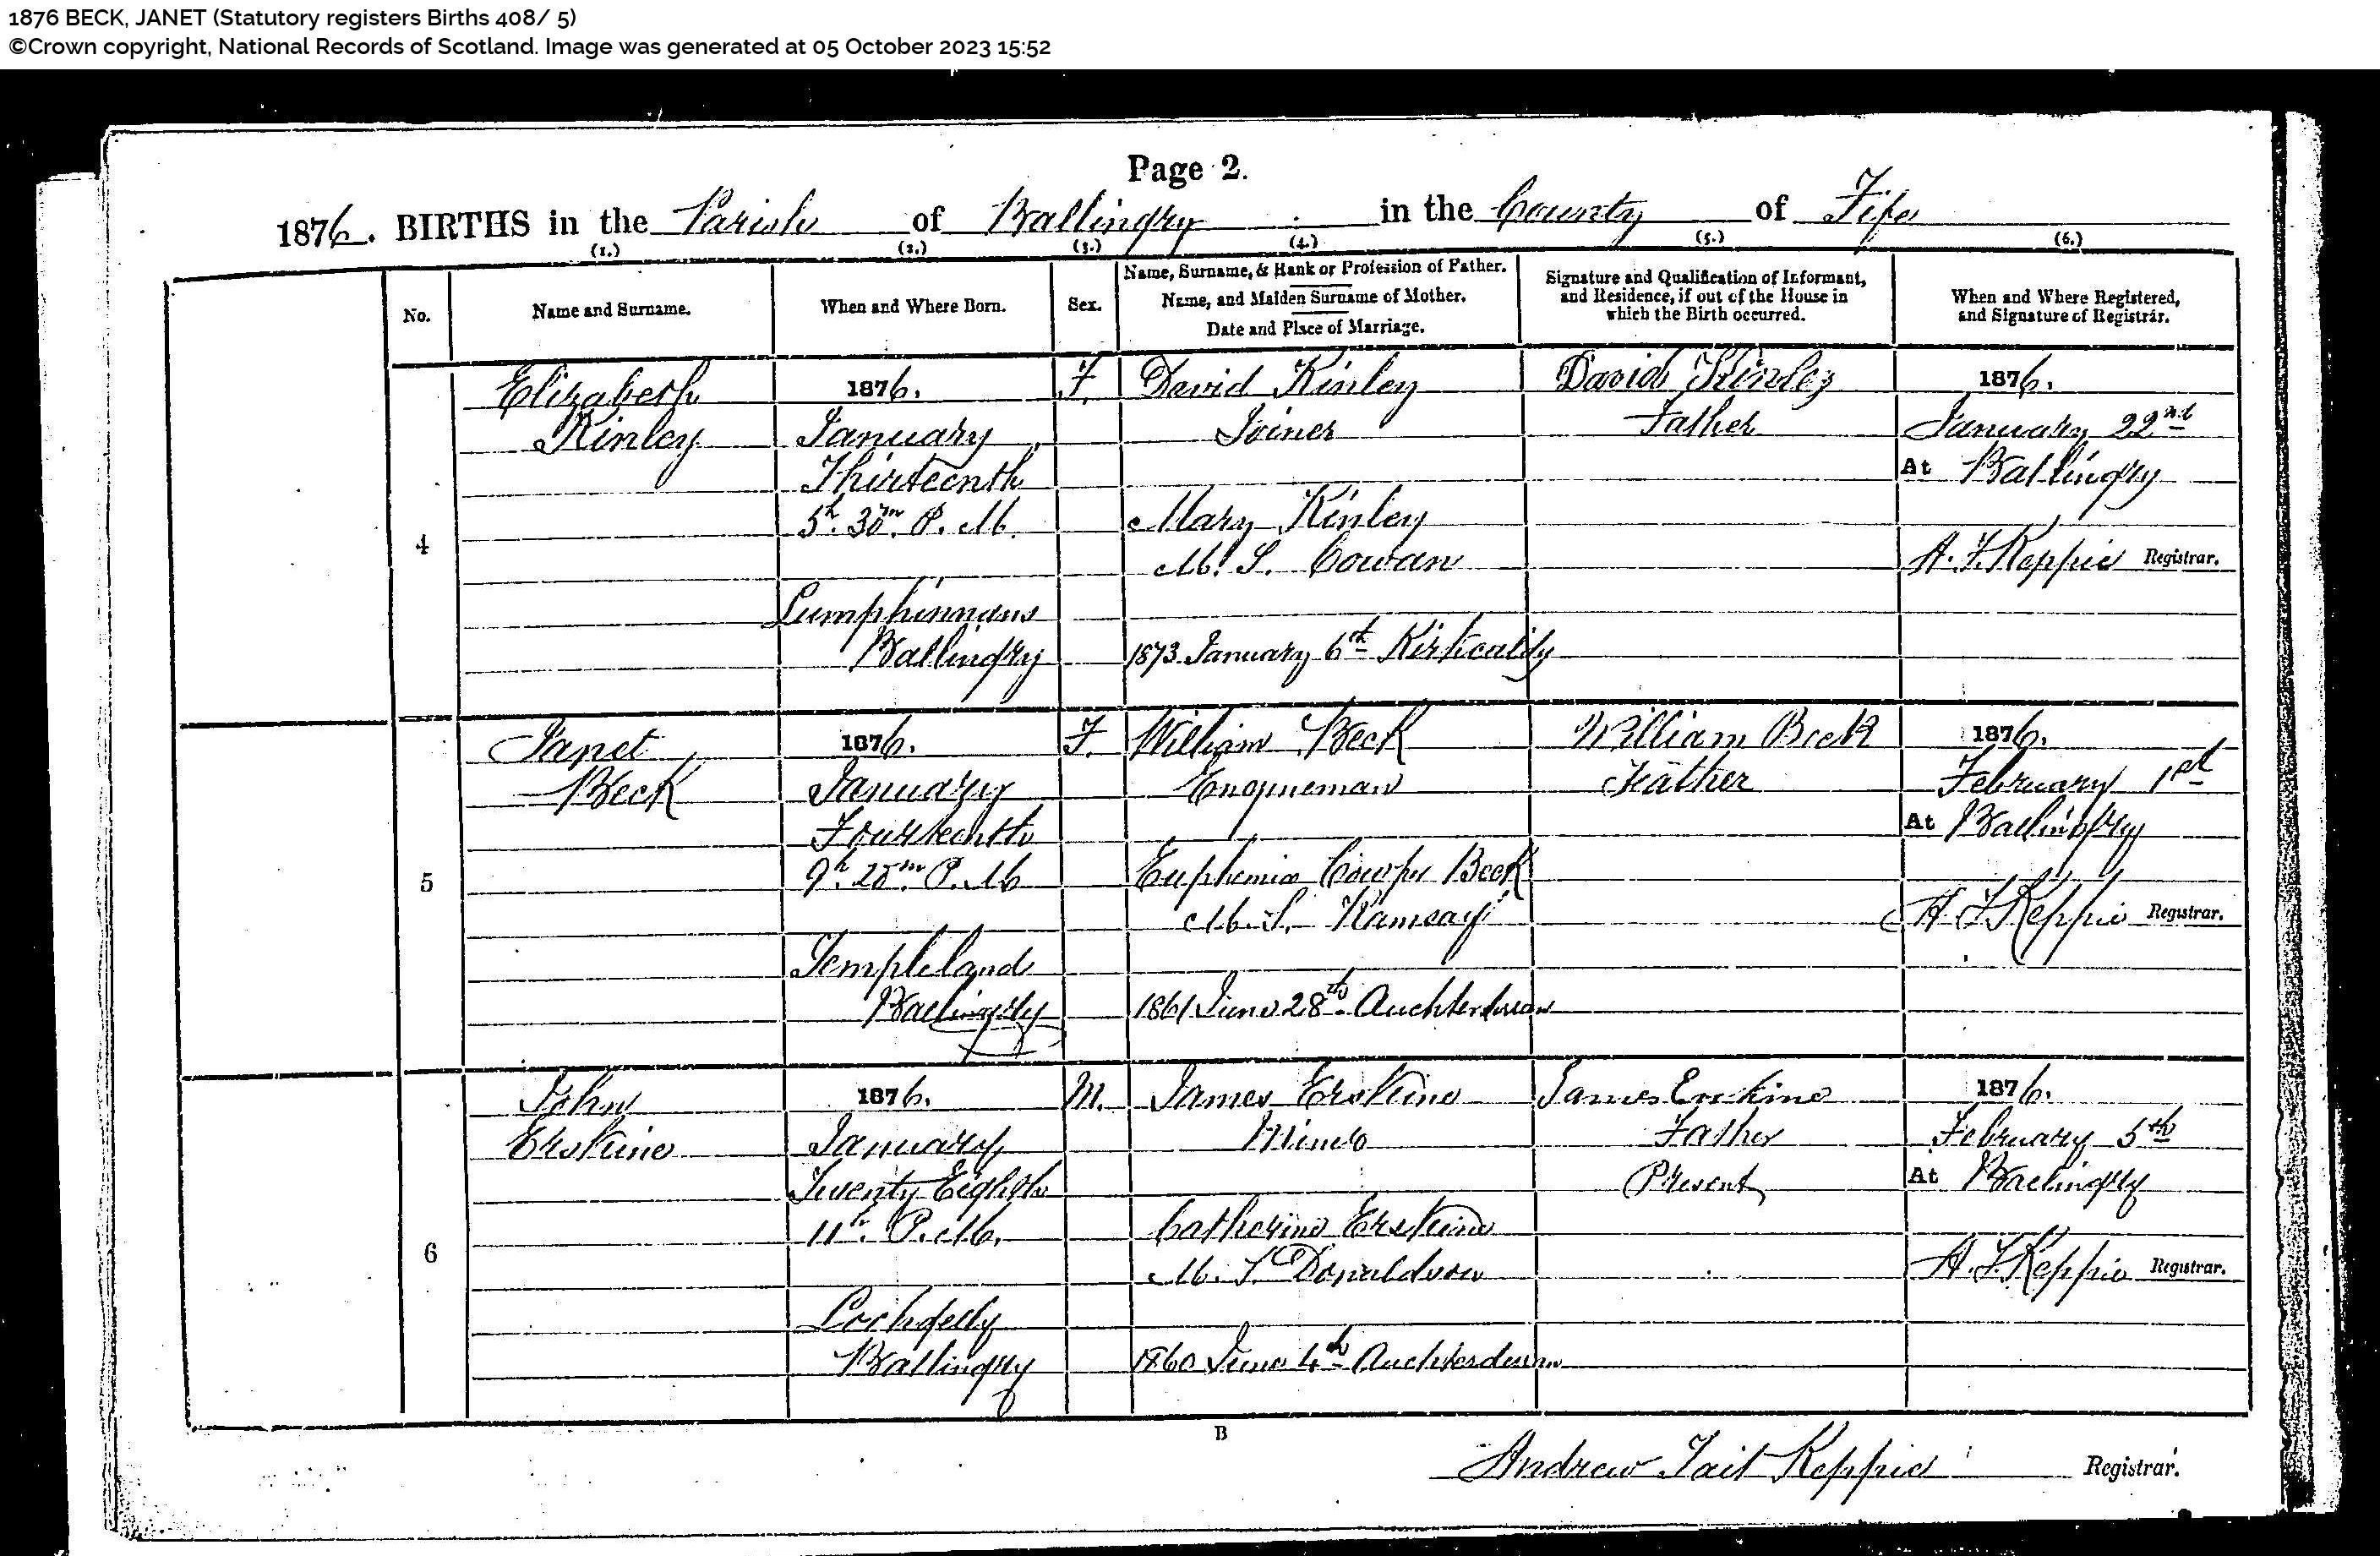 1876 BECK, JANET (Statutory registers Births 408/ 5)
©Crown copyright, National Records of Scotland. Image was generated at 05 October 2023 15:52
Page 2.
1876. BIRTHS in the Parish of Ballingry in the County of Fife
(1.) (2.) (3.) (4.) (5.) (6.)
No.
Name and Surname.
When and Where Born.
Sex.
Name, Surname, & Rank or Profession of Father.
Name, and Maiden Surname of Mother.
Date and Place of Marriage.
Signature and Qualification of Informant,
and Residence, if out of the House in
which the Birth occurred.
When and Where Registered,
and Signature of Registrar.
4
Elizabeth
Kinley
1876.
January
Thirteenth
5h. 30m. P. M.
Lumphinnans
Ballingry
F.
David Kinley
Joiner
Mary Kinley
M. S. Cowan
1873 January 6th Kirkcaldy
David Kinley
Father
1876.
January 22nd
At Ballingry
A. T. Keppie Registrar.
5
Janet
Beck
1876.
January
Fourteenth
9h. 20m. P. M
Templeland
Ballingry
F.
William Beck
Engineman
Euphemia Cowper Beck
M. S. Ramsay
1861 June 28th Auchterderran
William Beck
Father
1876.
February 1st
At Ballingry
A T Keppie Registrar.
6
John
Erskine
1876.
January
Twenty Eighth
11h. P. M.
Lochgelly
Ballingry
M.
James Erskine
Miner
Catherine Erskine
M. S Donaldson
1860 June 4th Auchterderran
James Erskine
Father
Present
1876.
February 5th
At Ballingry
A. T. Keppie Registrar.
B
Andrew Tait Keppie Registrar.